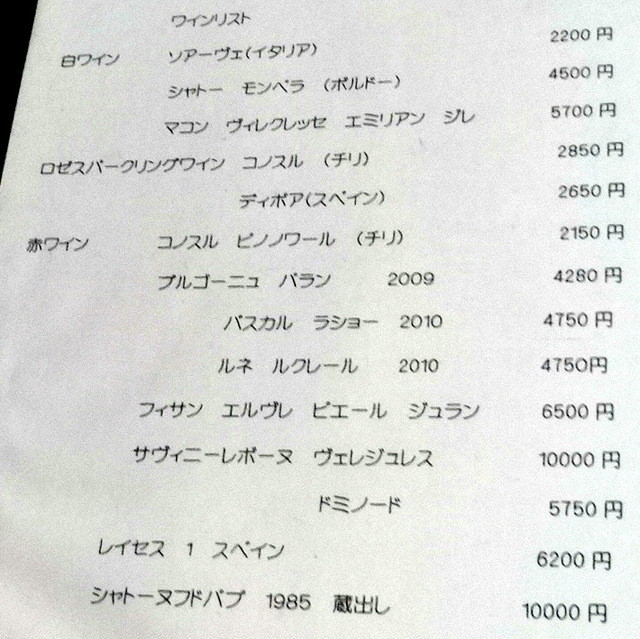 ワインリスト
白ワイン ソアーヴェ(イタリア) 2200 円
シャトー モンペラ (ボルドー) 4500 円
マコン ヴィレクレッセ エミリアン ジレ 5700 円
ロゼスパークリングワイン コノスル (チリ) 2850 円
ディボア(スペイン) 2650 円
赤ワイン コノスル ピノノワール (チリ) 2150 円
ブルゴーニュ バラン 2009 4280 円
パスカル ラショー 2010 4750 円
ルネ ルクレール 2010 4750円
フィサン エルヴレ ピエール ジュラン 6500 円
サヴィニーレボーヌ ヴェレジュレス 10000 円
ドミノード 5750 円
レイセス 1 スペイン 6200 円
シャトーヌフドパプ 1985 蔵出し 10000 円